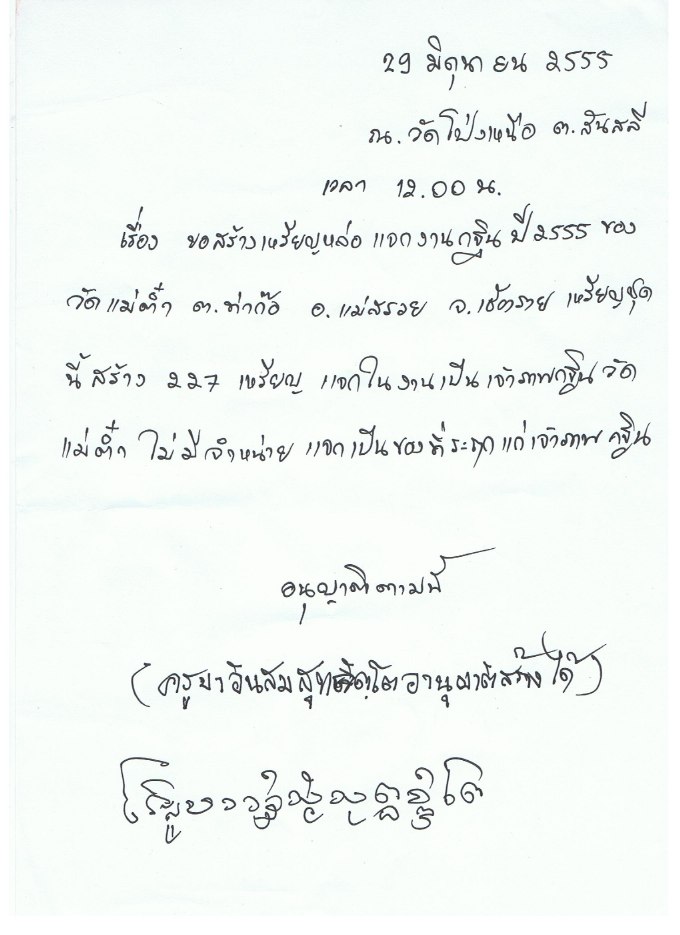 29 มิถุนายน 2555
ณ. วัดโป่งเหนือ ต.สันสลี
เวลา 12.00 น.
เรื่อง ขอสร้างเหรียญหล่อ แจกงานกฐิน ปี 2555 ของ
วัดแม่ต๋ำ ต.ท่าก๊อ อ.แม่สรวย จ.เชียงราย เหรียญชุด
นี้ สร้าง 227 เหรียญ แจกในงานเป็นเจ้าภาพกฐิน วัด
แม่ต๋ำ ไม่มีจำหน่าย แจกเป็นของที่ระฤกแก่เจ้าภาพ กฐิน
อนุญาติตามนี้
(ครูบาอินสม